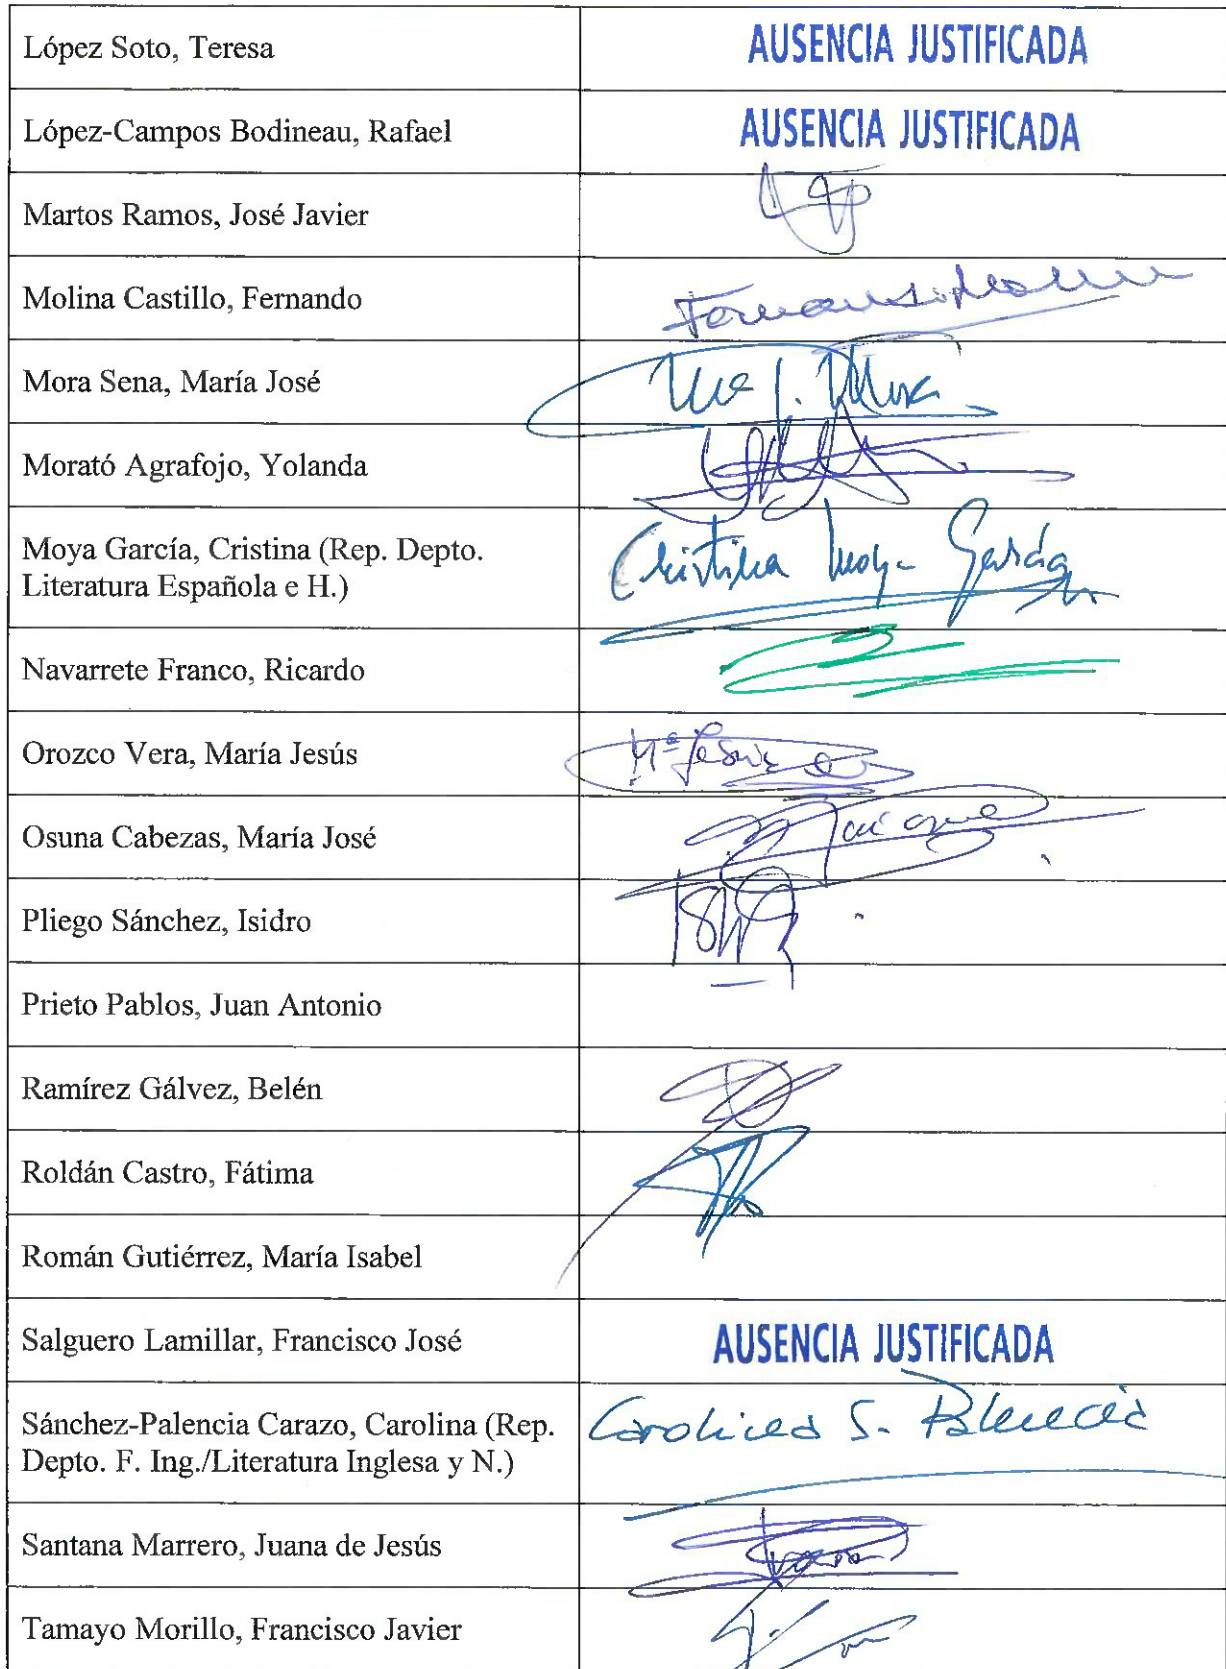 López Soto, Teresa AUSENCIA JUSTIFICADA
López-Campos Bodineau, Rafael AUSENCIA JUSTIFICADA
Martos Ramos, José Javier
Molina Castillo, Fernando
Mora Sena, María José
Morató Agrafojo, Yolanda
Moya García, Cristina (Rep. Depto. Cristina Moya García
Literatura Española e H.)
Navarrete Franco, Ricardo
Orozco Vera, María Jesús Mª Jesús
Osuna Cabezas, María José
Pliego Sánchez, Isidro
Prieto Pablos, Juan Antonio
Ramírez Gálvez, Belén
Roldán Castro, Fátima
Román Gutiérrez, María Isabel
Salguero Lamillar, Francisco José AUSENCIA JUSTIFICADA
Sánchez-Palencia Carazo, Carolina (Rep. Carolina S. Palencia
Depto. F. Ing./Literatura Inglesa y N.)
Santana Marrero, Juana de Jesús
Tamayo Morillo, Francisco Javier